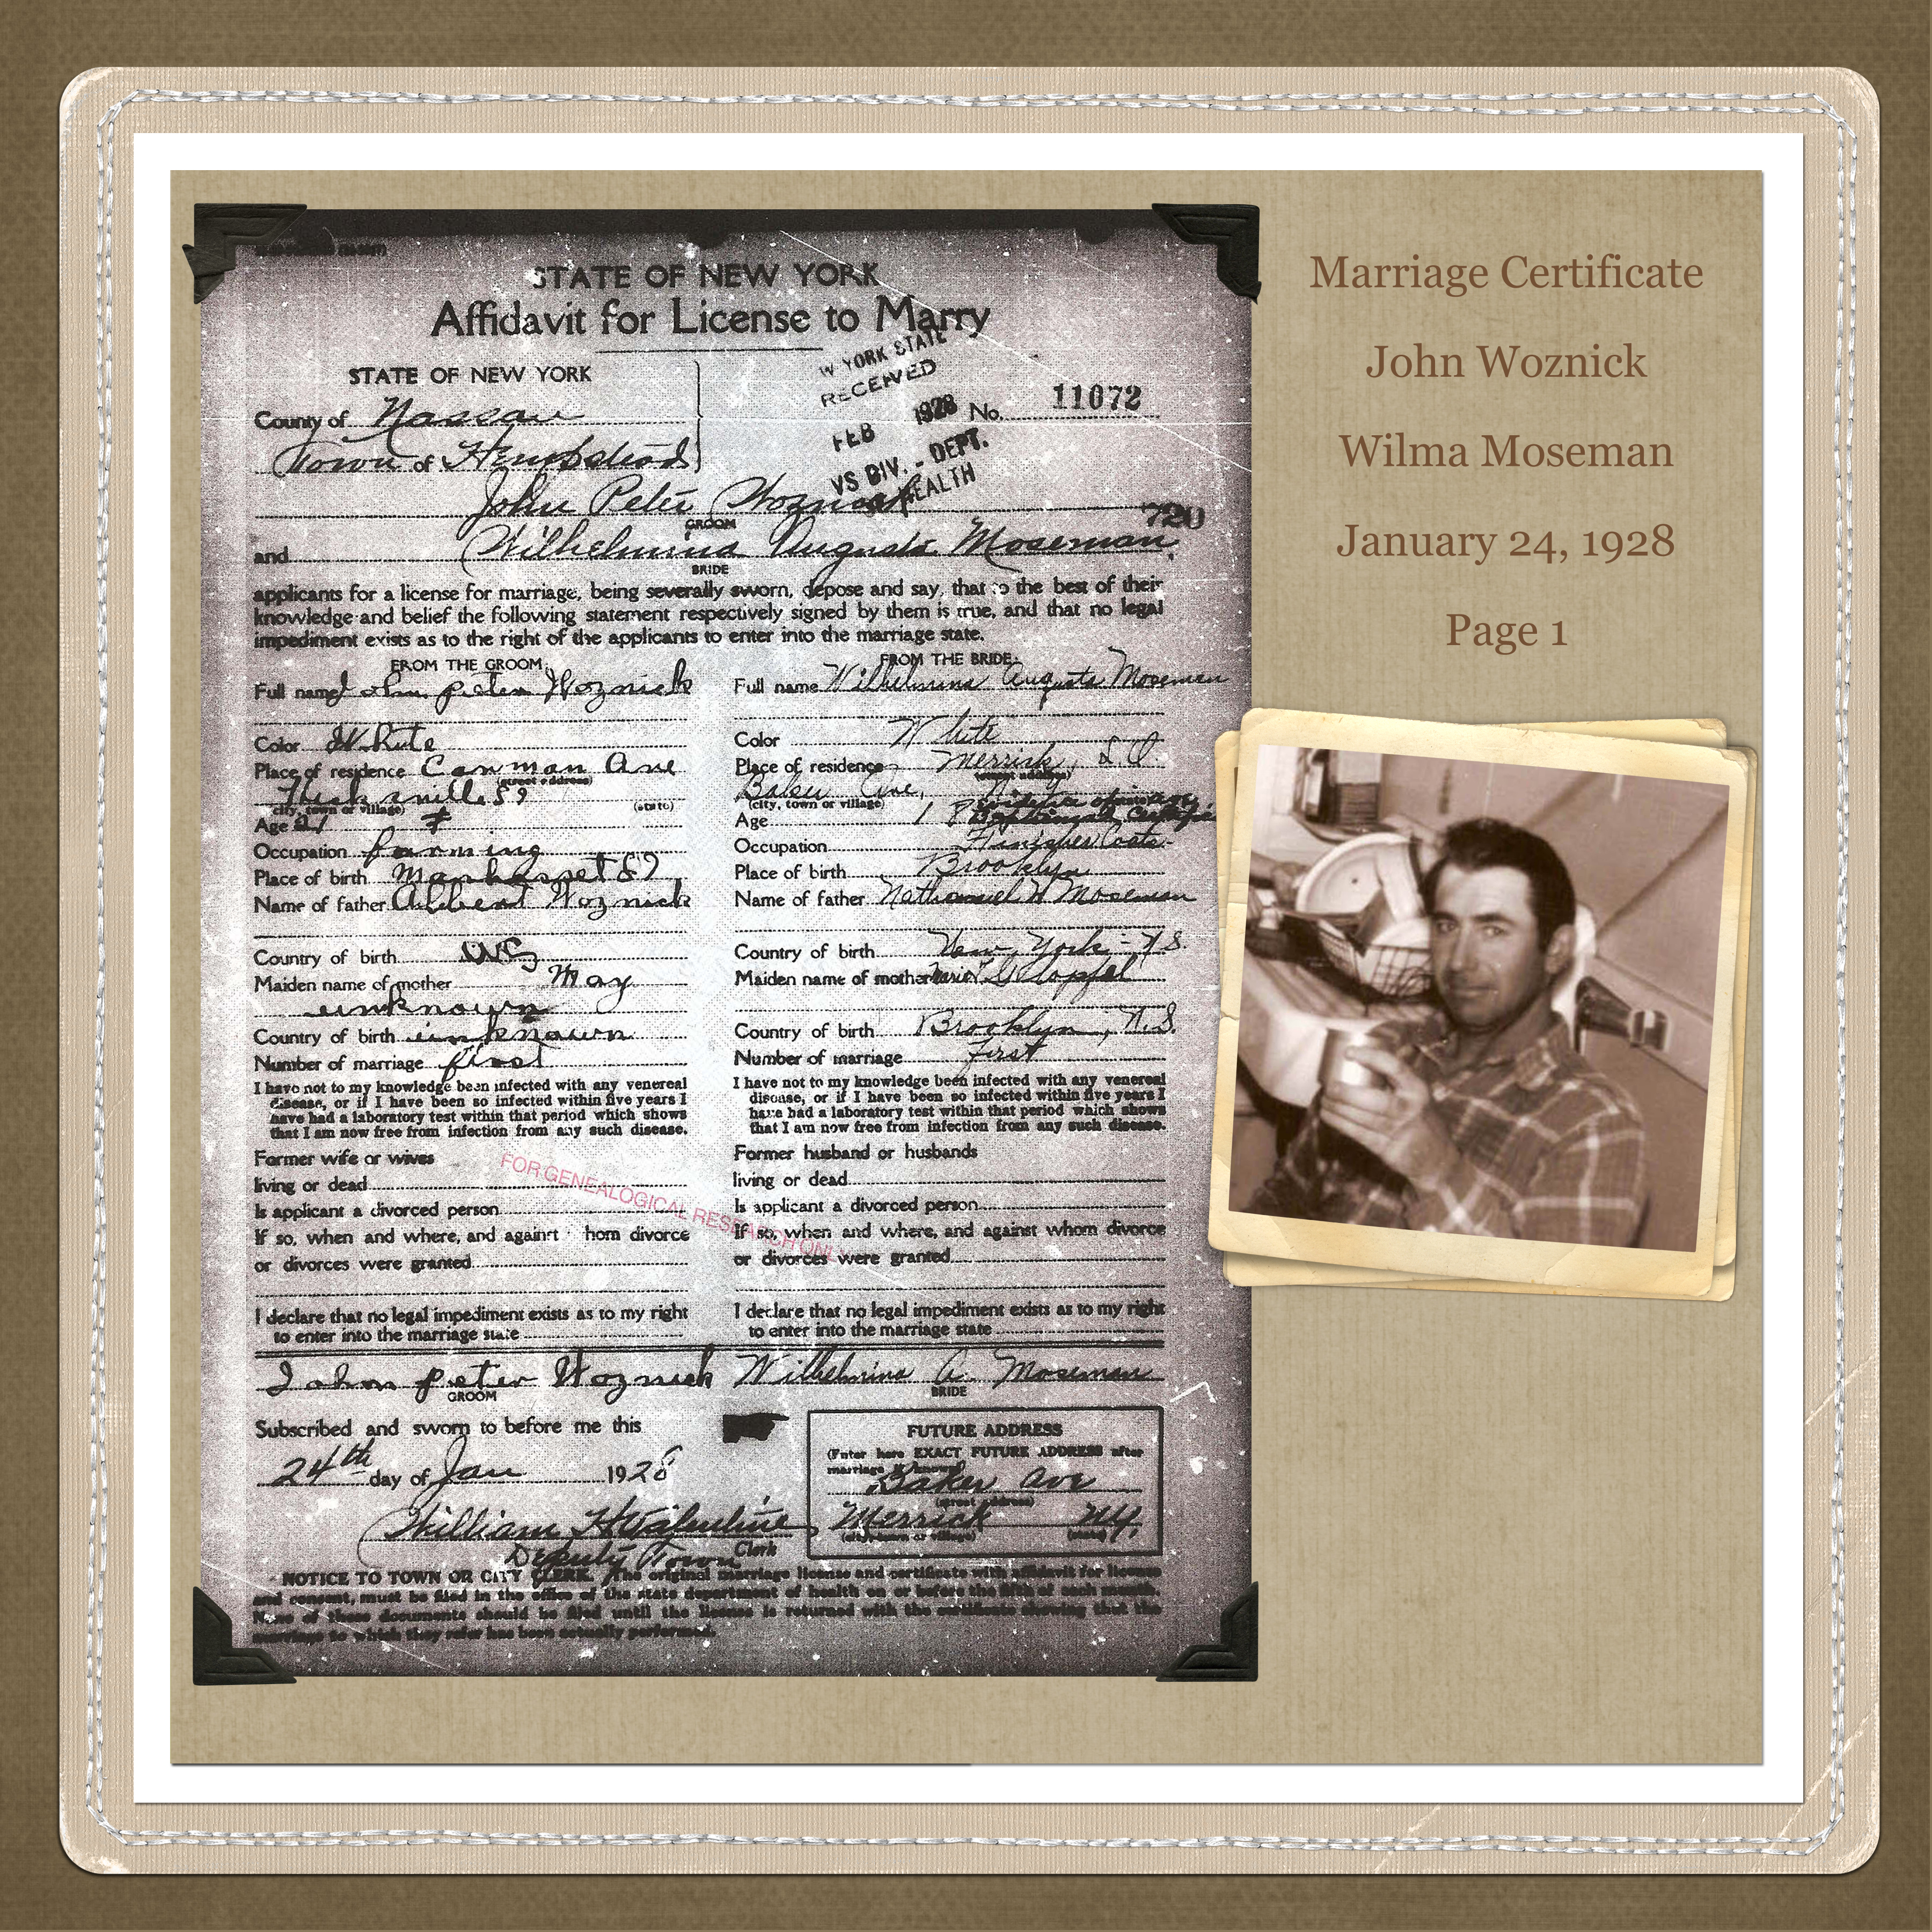 STATE OF NEW YORK
Affidavit for License to Marry
STATE OF NEW YORK
County of Nassau
Town of Hempstead
W YORK STATE
RECEIVED
FEB 1928
VS DIV. - DEPT.
HEALTH
No. 11072
John Peter Woznick
GROOM
720
and Wilhelmina Augusta Moseman
BRIDE
applicants for a license for marriage, being severally sworn, depose and say, that to the best of their
knowledge and belief the following statement respectively signed by them is true, and that no legal
impediment exists as to the right of the applicants to enter into the marriage state.
FROM THE GROOM
Full name John peter Woznick
Color White
Place of residence Ave
(street address)
(city, town or village) (state)
Age 21
Occupation farming
Place of birth
Name of father Woznick
Country of birth
Maiden name of mother May
unknown
Country of birth unknown
Number of marriage first
I have not to my knowledge been infected with any venereal
disease, or if I have been so infected within five years I
have had a laboratory test within that period which shows
that I am now free from infection from any such disease.
Former wife or wives
living or dead
Is applicant a divorced person
If so, when and where, and against hom divorce
or divorces were granted
I declare that no legal impediment exists as to my right
to enter into the marriage state
FROM THE BRIDE
Full name Wilhelmina Augusta Moseman
Color White
Place of residence Merrick, L.I.
(street address)
Baker Ave,
(city, town or village)
Age 18
Occupation Finisher Coats
Place of birth Brooklyn
Name of father Nathaniel W Moseman
Country of birth New York
Maiden name of mother
Country of birth Brooklyn,
Number of marriage First
I have not to my knowledge been infected with any venereal
disease, or if I have been so infected within five years I
have had a laboratory test within that period which shows
that I am now free from infection from any such disease.
Former husband or husbands
living or dead
Is applicant a divorced person
If so, when and where, and against whom divorce
or divorces were granted
I declare that no legal impediment exists as to my right
to enter into the marriage state
FOR GENEALOGICAL RESEARCH ONLY
John peter Woznick
GROOM
Wilhelmina A. Moseman
BRIDE
Subscribed and sworn to before me this
24th day of Jan 1928
William H Valentine
Deputy Town Clerk
FUTURE ADDRESS
(Enter here EXACT FUTURE ADDRESS after
marriage if known)
Baker Ave
(street address)
Merrick NY.
(city, town or village) (state)
NOTICE TO TOWN OR CITY CLERK. The original marriage license and certificate with affidavit for license
and consent, must be filed in the office of the state department of health on or before the fifth of each month.
None of these documents should be filed until the license is returned with the certificate showing that the
marriage to which they refer has been actually performed.
Marriage Certificate
John Woznick
Wilma Moseman
January 24, 1928
Page 1